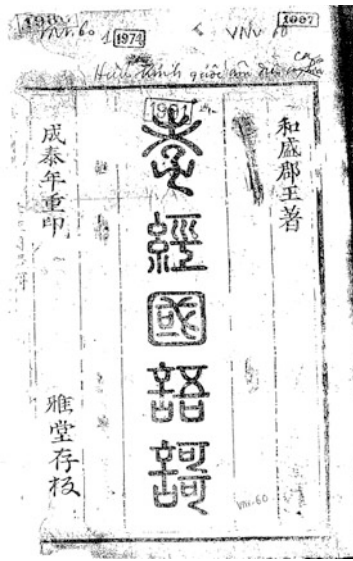 VNv. 60
1974
VNv 60
Hiếu kinh quốc âm diễn ca
和盛郡王著
孝經國語謌
成泰年重印
雅堂存板
VNv.60